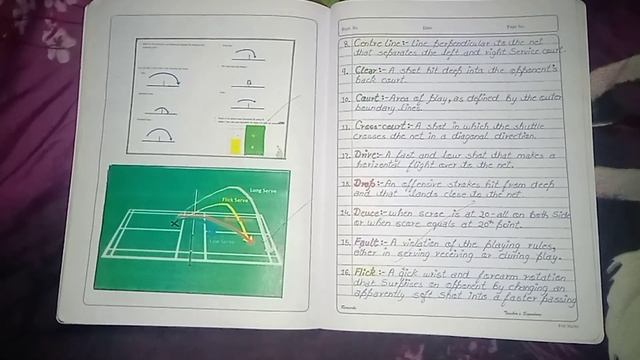 Long Serve
Flick Serve
Low Serve
Date
Page No.
8. Centre line:- Line perpendicular to the net
that separates the left and right Service court.
9. Clear:- A shot hit deep into the opponent's
back court.
10. Court:- Area of play, as defined by the outer
boundary lines.
11. Cross-court:- A shot in which the shuttle
crosses the net in a diagonal direction.
12. Drive:- A fast and low shot that makes a
horizontal flight over to the net.
13. Drop:- An offensive strokes hit from deep
and that lands close to the net.
14. Deuce:- when score is at 20-all on both side
or when score equals at 20th point.
15. Fault:- A violation of the playing rules,
either in serving receiving or during play.
16. Flick:- A qick wrist and forearm rotation
that Surprises an opponent by changing an
apparently soft shot into a faster passing
Remarks
Teacher's Signature